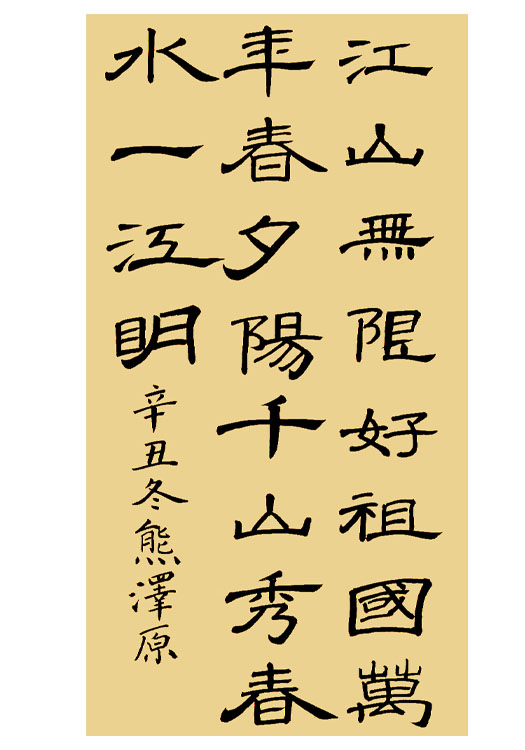 江山無限好祖國萬
年春夕陽千山秀春
水一江明
辛丑冬熊澤原